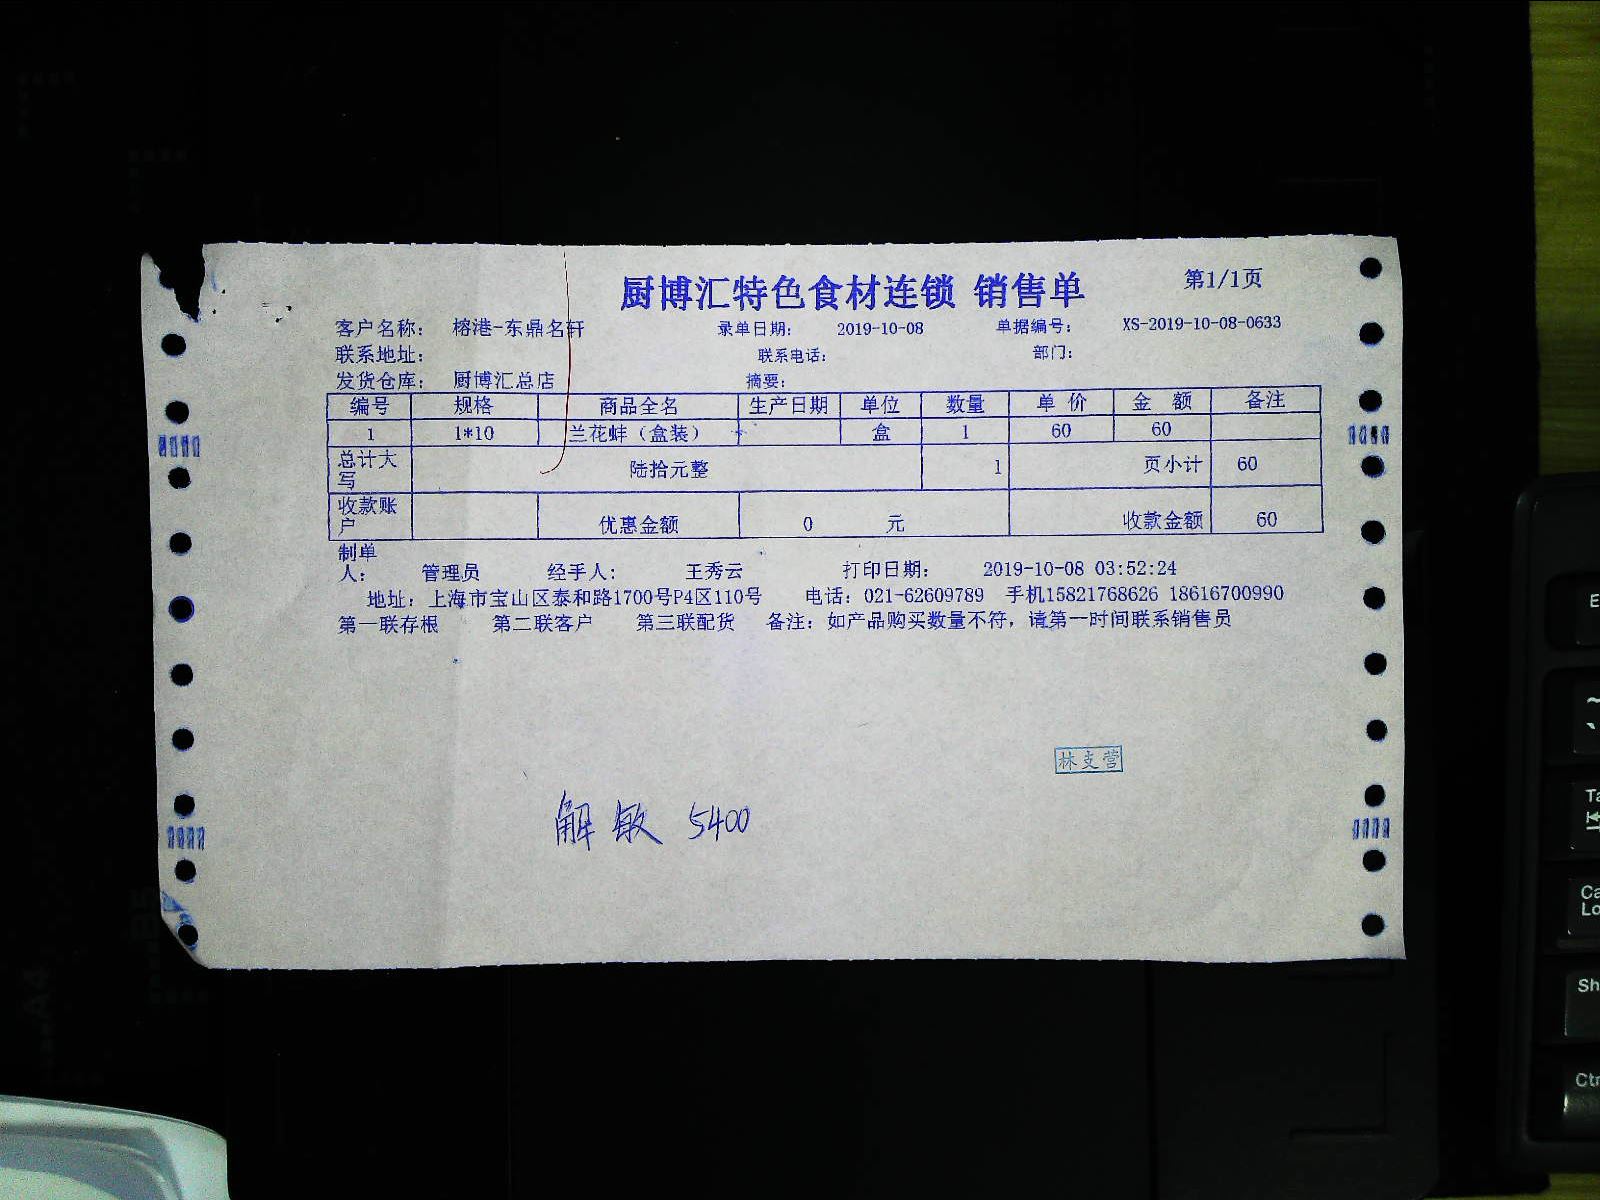 厨博汇特色食材连锁 销售单 第1/1页
客户名称： 榕港-东鼎名轩 录单日期： 2019-10-08 单据编号： XS-2019-10-08-0633
联系地址： 联系电话： 部门：
发货仓库： 厨博汇总店 摘要：
编号 规格 商品全名 生产日期 单位 数量 单 价 金 额 备注
1 1*10 兰花蚌（盒装） 盒 1 60 60
总计大写 陆拾元整 1 页小计 60
收款账户 优惠金额 0 元 收款金额 60
制单人： 管理员 经手人： 王秀云 打印日期： 2019-10-08 03:52:24
地址：上海市宝山区泰和路1700号P4区110号 电话：021-62609789 手机15821768626 18616700990
第一联存根 第二联客户 第三联配货 备注：如产品购买数量不符，请第一时间联系销售员
林支营
解敏 5400
E
~
`
Ta
Ca
Lo
Sh
Ctr